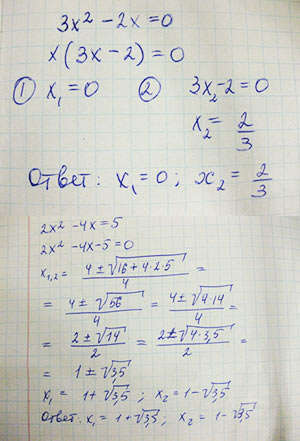 3x² - 2x = 0
x(3x - 2) = 0
① x₁ = 0 ② 3x₂ - 2 = 0
x₂ = 2/3
Ответ: x₁ = 0; x₂ = 2/3
2x² - 4x = 5
2x² - 4x - 5 = 0
x₁,₂ = (4 ± √(16 + 4·2·5))/4 =
= (4 ± √56)/4 = (4 ± √(4·14))/4 =
= (2 ± √14)/2 = (2 ± √(4·3,5))/2 =
= 1 ± √3,5
x₁ = 1 + √3,5 ; x₂ = 1 - √3,5
Ответ: x₁ = 1 + √3,5 , x₂ = 1 - √3,5